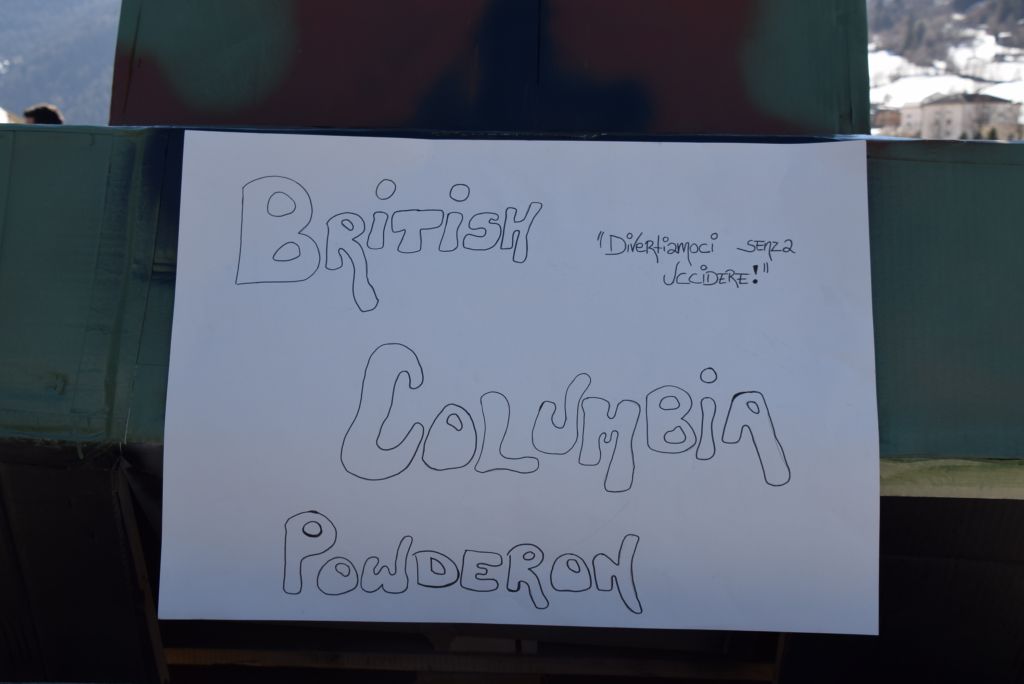 BRiTiSH
"Divertiamoci senza
UCCIDERE!"
COLUMBiA
POWDERON